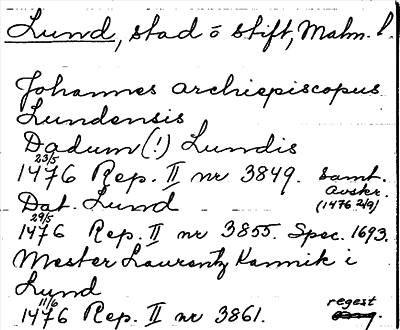 Lund, stad o stift, Malm. l.
Johannes archiepiscopus
Lundensis
Dadum (!) Lundis
23/5
1476 Rep. II nr 3849. samt.
Avskr.
(1476 2/9)
Dat. Lund
29/5
1476 Rep. II nr 3855. Spec. 1693.
Mester Laurentz Kannik i
Lund
11/6
1476 Rep. II nr 3861. regest